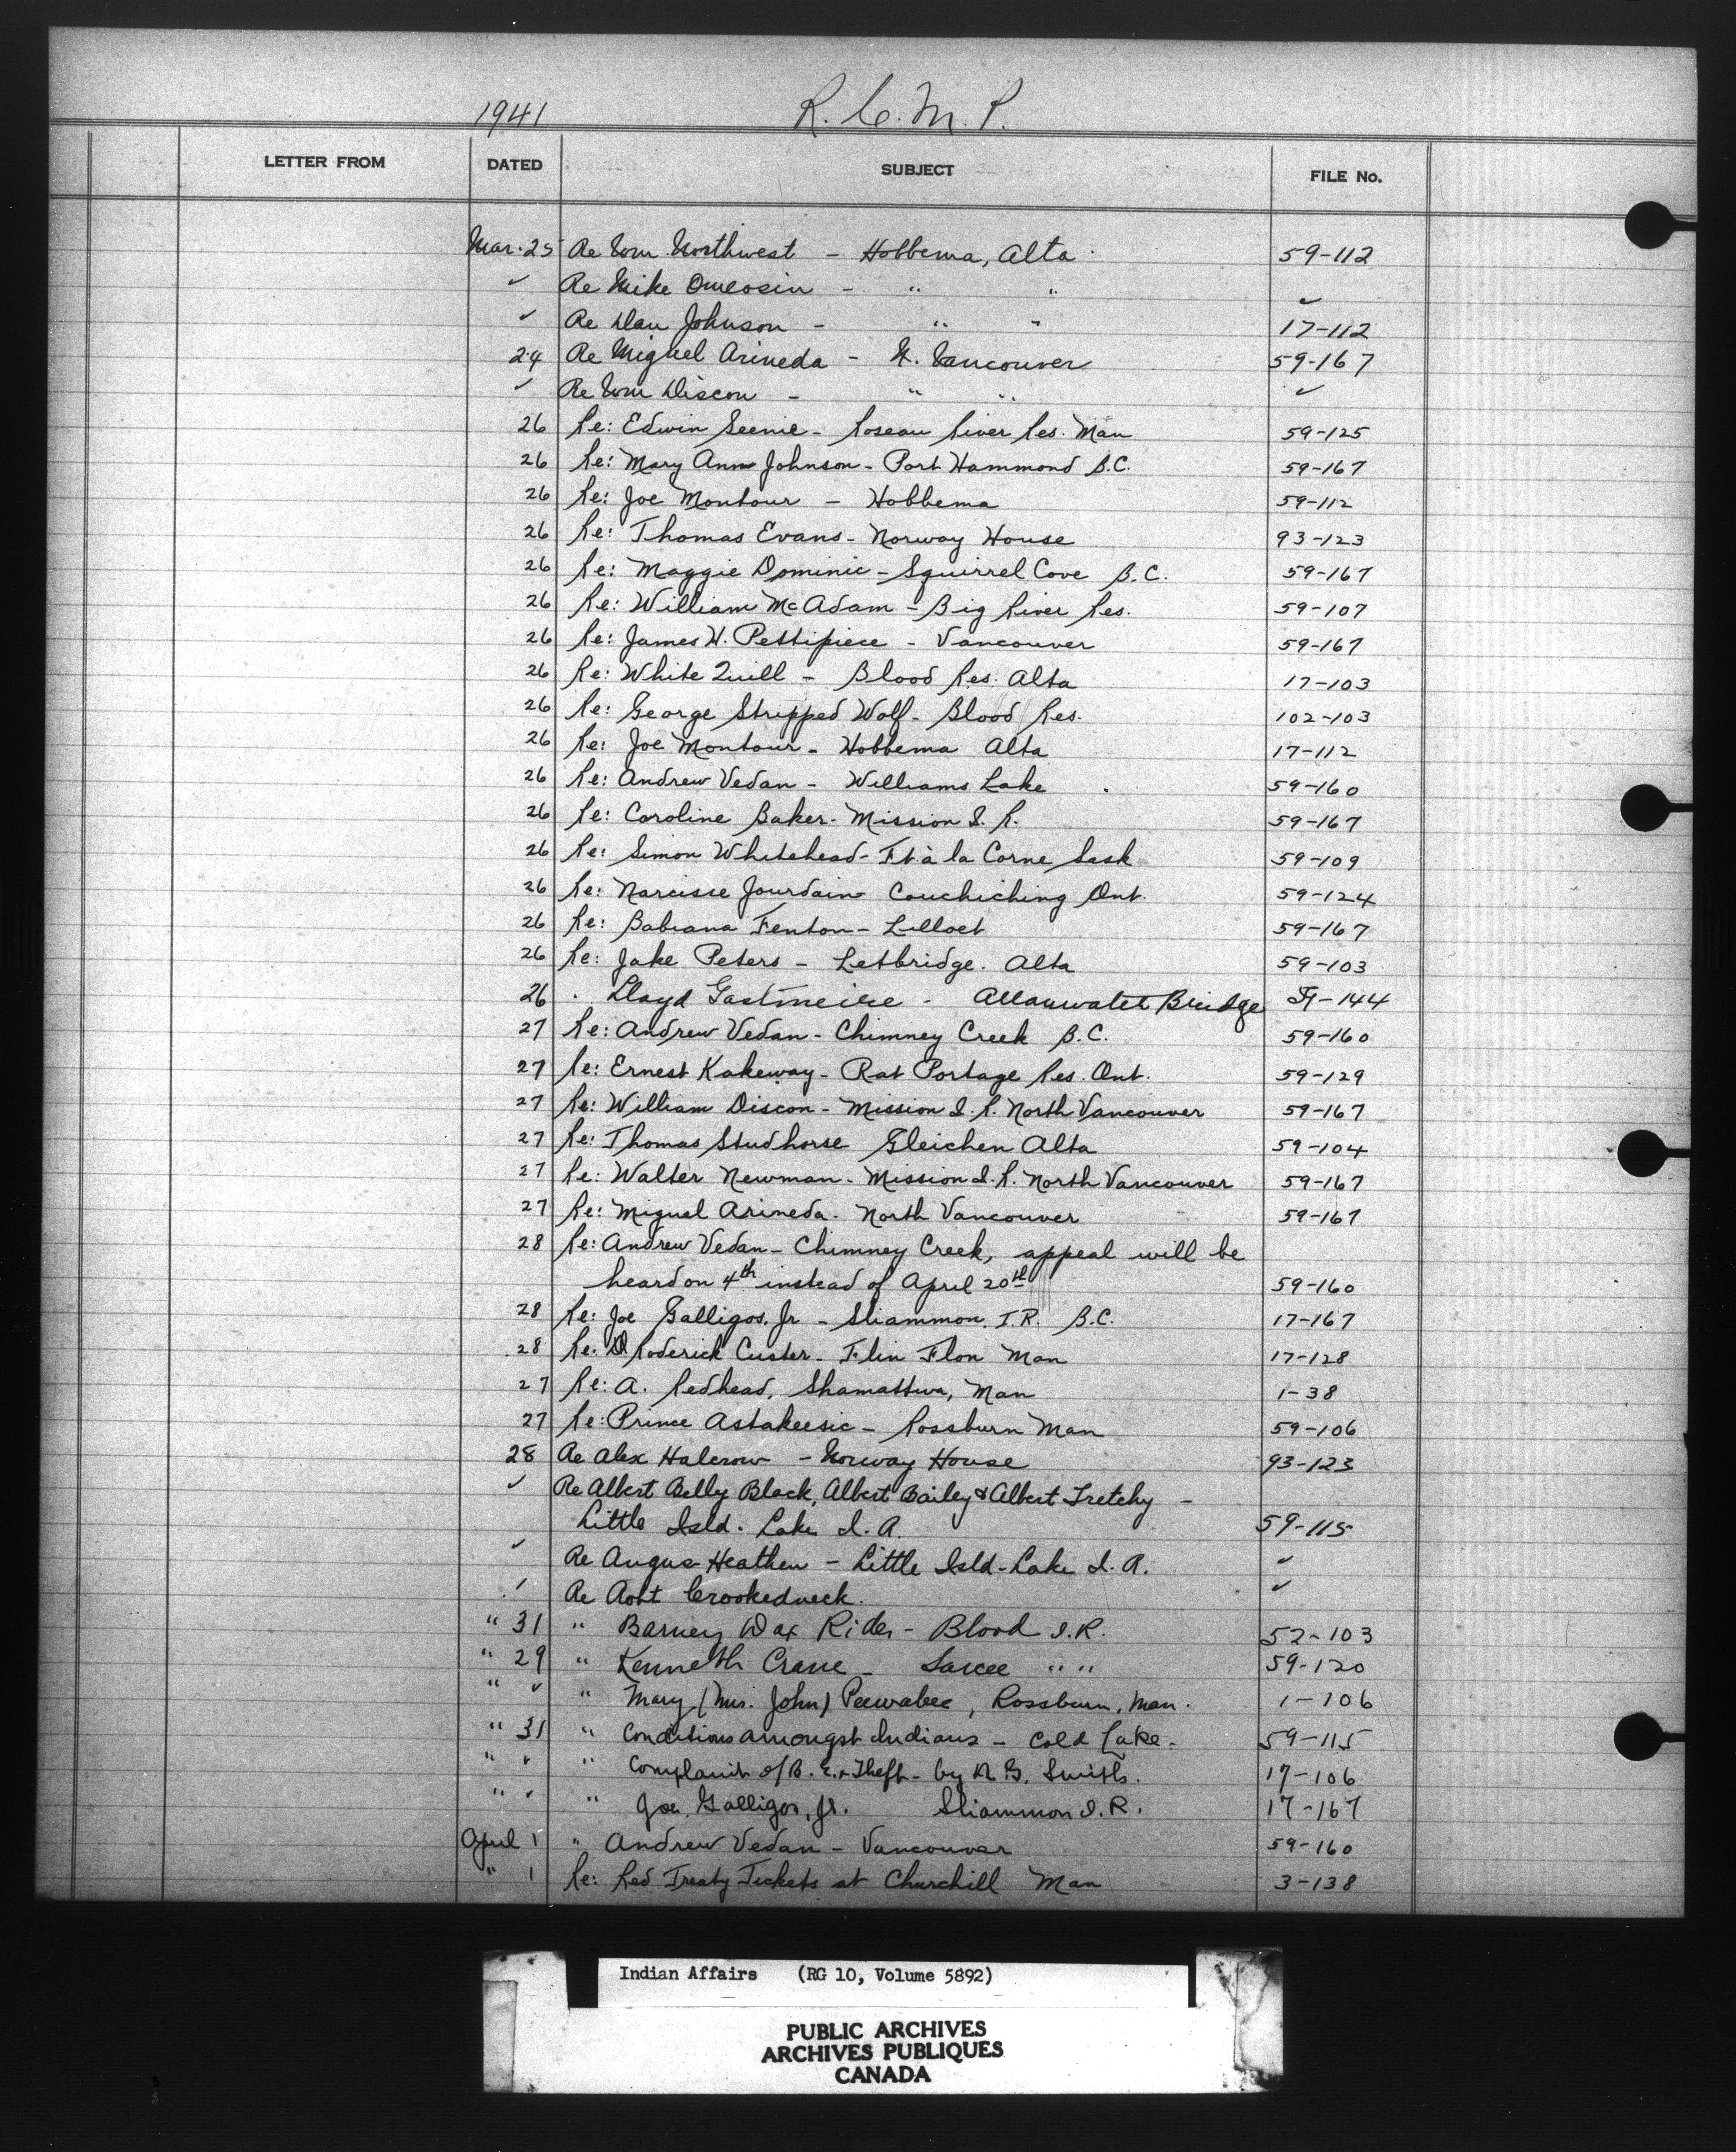 1941 R. C. M. P.
LETTER FROM DATED SUBJECT FILE No.
Mar. 25 Re Wm. Northwest - Hobbema, Alta. 59-112
✓ Re Mike Omeosin - " " ✓
✓ Re Dan Johnson - " " 17-112
24 Re Miguel Arineda - N. Vancouver 59-167
✓ Re Wm Discon - " " ✓
26 Re: Edwin Seenie - Roseau River Res. Man 59-125
26 Re: Mary Ann Johnson - Port Hammond B.C. 59-167
26 Re: Joe Montour - Hobbema 59-112
26 Re: Thomas Evans - Norway House 93-123
26 Re: Maggie Dominic - Squirrel Cove B.C. 59-167
26 Re: William McAdam - Big River Res. 59-107
26 Re: James H. Pettipiece - Vancouver 59-167
26 Re: White Quill - Blood Res. Alta 17-103
26 Re: George Stripped Wolf - Blood Res. 102-103
26 Re: Joe Montour - Hobbema Alta 17-112
26 Re: Andrew Vedan - Williams Lake 59-160
26 Re: Caroline Baker - Mission I. R. 59-167
26 Re: Simon Whitehead - Ft à la Corne Sask 59-109
26 Re: Narcisse Jourdain - Couchiching Ont. 59-124
26 Re: Babiana Fenton - Lilloet 59-167
26 Re: Jake Peters - Letbridge. Alta 59-103
26 Lloyd - Allanwater Bridge 59-144
27 Re: Andrew Vedan - Chimney Creek B.C. 59-160
27 Re: Ernest Kakeway - Rat Portage Res. Ont. 59-129
27 Re: William Discon - Mission I. R. North Vancouver 59-167
27 Re: Thomas Studhorse Gleichen Alta 59-104
27 Re: Walter Newman - Mission I. R. North Vancouver 59-167
27 Re: Miguel Arineda. North Vancouver 59-167
28 Re: Andrew Vedan - Chimney Creek, appeal will be
heard on 4th instead of April 20th 59-160
28 Re: Joe Galligos, Jr - Sliammon I.R. B.C. 17-167
28 Re. Roderick Custer - Flin Flon Man 17-128
27 Re: A. Redhead, Shamattwa, Man 1-38
27 Re: Prince Astakeesic - Rossburn Man 59-106
28 Re Alex Halcrow - Norway House 93-123
✓ Re Albert Belly Black, Albert Bailey & Albert Tretchy -
Little Isld. Lake I. A. 59-115
✓ Re Angus Heathen - Little Isld. Lake I. A. ✓
✓ Re Robt Crookedneck. ✓
" 31 " Barney Dax Rider - Blood I.R. 52-103
" 29 " Kenneth Crane - Sarcee " " 59-120
" ✓ " Mary (Mrs. John) Peewabee, Rossburn, Man. 1-106
" 31 " Conditions amongst Indians - Cold Lake. 59-115
" ✓ " Complaint of B. E. & Theft - by N. G. Smith. 17-106
" ✓ " Joe Galligos, Jr. Sliammon I.R. 17-167
April 1 " Andrew Vedan - Vancouver 59-160
" 1 Re: Red Treaty Tickets at Churchill Man 3-138
Indian Affairs (RG 10, Volume 5892)
PUBLIC ARCHIVES
ARCHIVES PUBLIQUES
CANADA